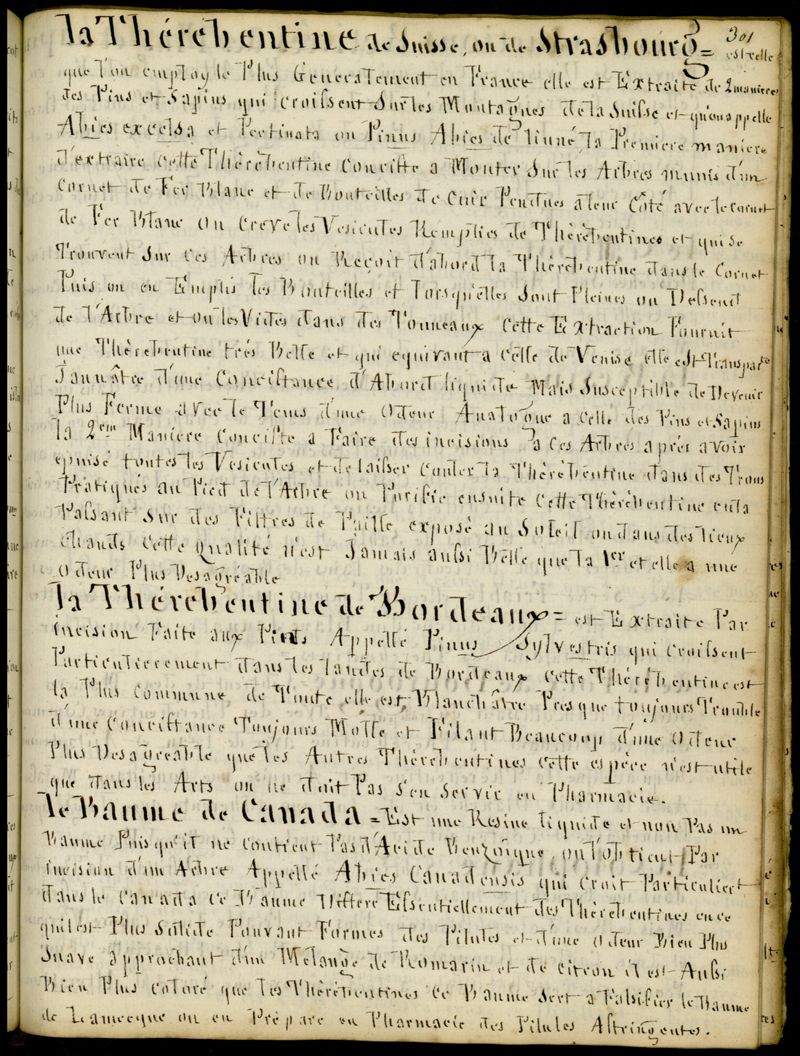 301
la Thérebentine de Suisse, ou de Strasbourg = est celle
que l'on employ le Plus Generalement en France elle est Extraite de 2 manieres
des Pins et Sapins qui Croissent Sur les Montagnes de la Suisse et qu'on appelle
Abies excelsa et Pectinata ou Pinus Abies de linné, la Premiere maniere
d'extraire Cette Thèrèbentine Conciste a Monter Sur les Arbres munis d'un
Cornet de Fer Blanc et de Bouteilles de Cuir Pendues a leur Côté avec le Cornet
de Fer Blanc on Creve les Vesicules Remplies de Thèrèbentines et qui se
Trouvent Sur Ces Arbres on Reçoit d'abord la Thèrèbentine dans le Cornet
Puis on en Emplis les Bouteilles et lorsqu'elles Sont Pleines on Dessend
de l'Arbre et on les Vides dans des Tonneaux Cette Extraction Fournit
une Thèrèbentine trés Belle et qui equivaut a Celle de Venise elle est Transparte
Jaunâtre d'une Concistance d'Abord liquide Mais Susceptible de Devenir
Plus Ferme avec le Tems d'une Odeur Analogue a Celle des Pins et Sapins
la 2eme Maniere Conciste a Faire des incisions a Ces Arbres aprés avoir
épuisé toutes les Vesicules et de laisser Couler la Thèrèbentine dans des Trous
Pratiqués au Pied de l'Arbre on Purifie ensuite Cette Thèrèbentine en la
Passant Sur des Filtres de Paille exposé au Soleil ou dans des lieux
chauds Cette Qualité n'est Jamais aussi Belle que la 1er et elle a une
Odeur Plus Desagréable
la Thérebentine de Bordeaux = est Extraite Par
incision Faite aux Pins Appellé Pinus Sylvestris qui Croissent
Particulierement dans les landes de Bordeaux Cette Thèrèbentine est
la Plus Commune de Toute elle est Blanchâtre Presque toujours Trouble
d'une Concistance Toujours Molle et Filant Beaucoup d'une Odeur
Plus Desagreable que les Autres Thèrèbentines Cette espèce n'est utile
que dans les Arts on ne doit Pas s'en Servir en Pharmacie.
le Baume de Canada = Est une Resine liquide et non Pas un
Baume Puis qu'il ne Contient Pas d'Acide Benzoique, on l'obtient Par
incision d'un Arbre Appellé Abies Canadensis qui Croit Particuliert
dans le Canada Ce Baume Differe Essentiellement des Thèrèbentines en ce
qu'il est Plus Solide Pouvant Formes des Pilules et d'une odeur Bien Plus
Suave approchant d'un Mélange de Romarin et de Citron il est Aussi
Bien Plus Coloré que les Thèrèbentines Ce Baume Sert a Falsifier le Baume
de Leamecque on en Prépare en Pharmacie des Pilules Astringentes.